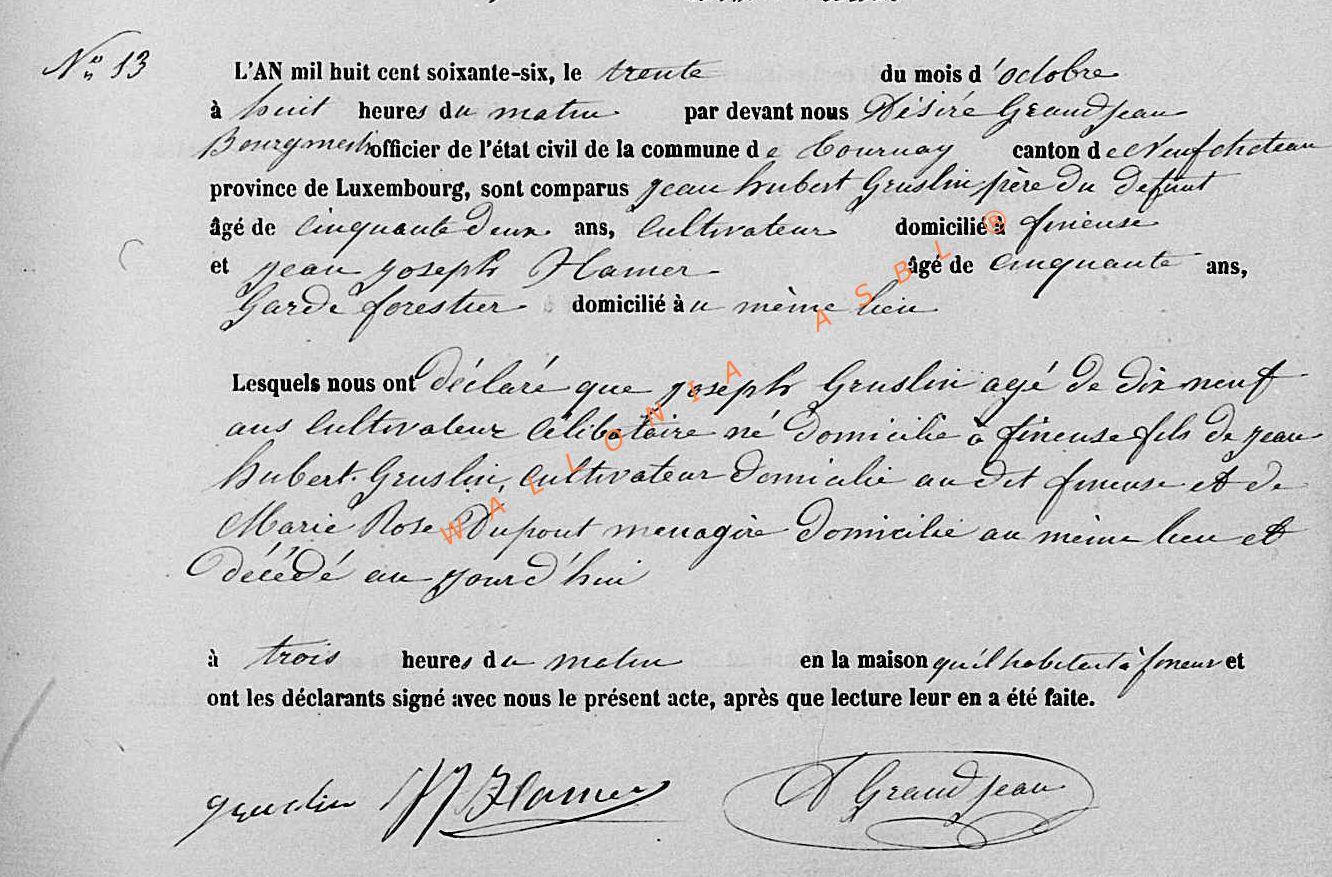 No 13
L'AN mil huit cent soixante-six, le trente du mois d'octobre
à huit heures du matin par devant nous Désiré Grandjean
Bourgmestre officier de l'état civil de la commune de Tournay canton de Neufchateau
province de Luxembourg, sont comparus jean hubert Gruslin père du défunt
âgé de cinquante deux ans, Cultivateur domicilié à fineuse
et jean joseph Hamer âgé de cinquante ans,
Garde forestier domicilié au même lieu
Lesquels nous ont déclaré que joseph Gruslin agé de dix neuf
ans Cultivateur Célibataire né Domicilié à fineuse fils de jean
hubert Gruslin, Cultivateur domicilié au dit fineuse et de
Marie Rose Dupont menagère domicilié au même lieu et
décédé au jourd'hui
à trois heures du matin en la maison qu'il habitait à et
ont les déclarants signé avec nous le présent acte, après que lecture leur en a été faite.
gruslin JJ Hamer D Grandjean
WALLONIA ASBL ®